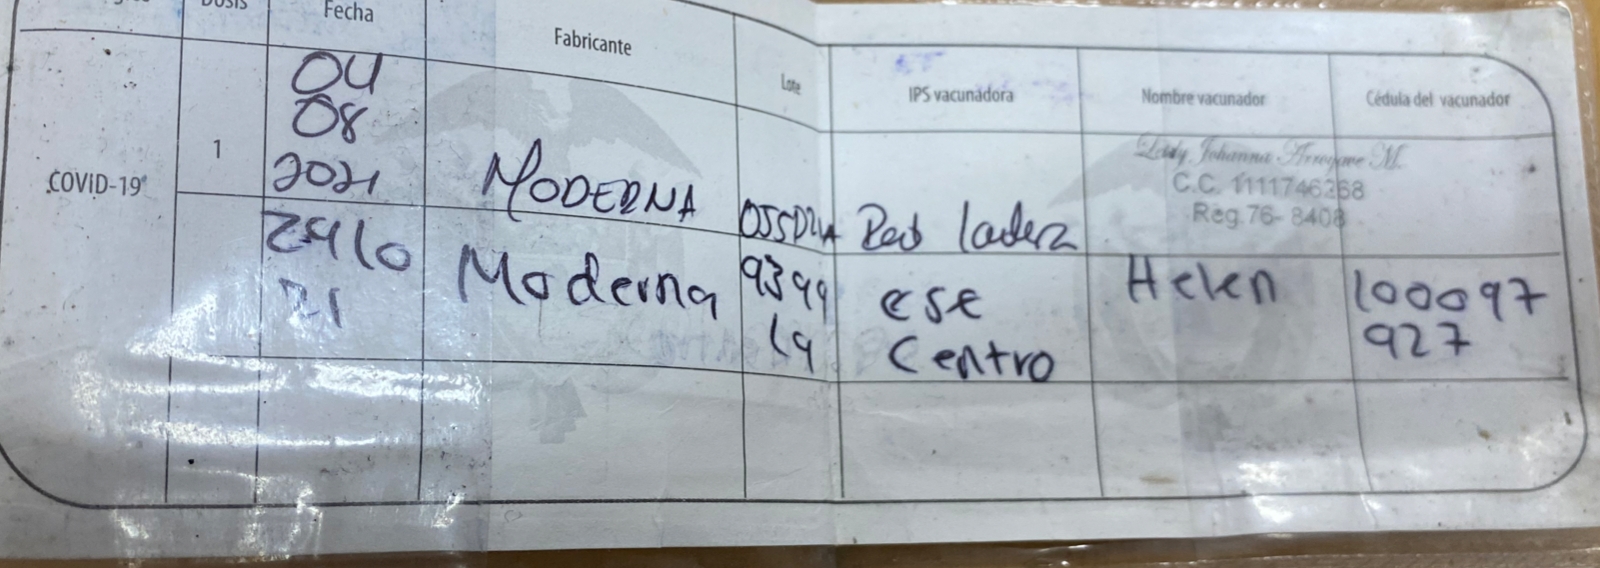 Dosis
Fecha
Fabricante
Lote
IPS vacunadora
Nombre vacunador
Cédula del vacunador
COVID-19
1
04
08
2021
MODERNA
Red ladera
Leidy Johanna Arroyave M.
C.C. 1111746268
Reg.76-8408
21
Moderna
9399
ese
Centro
Helen
100097
927